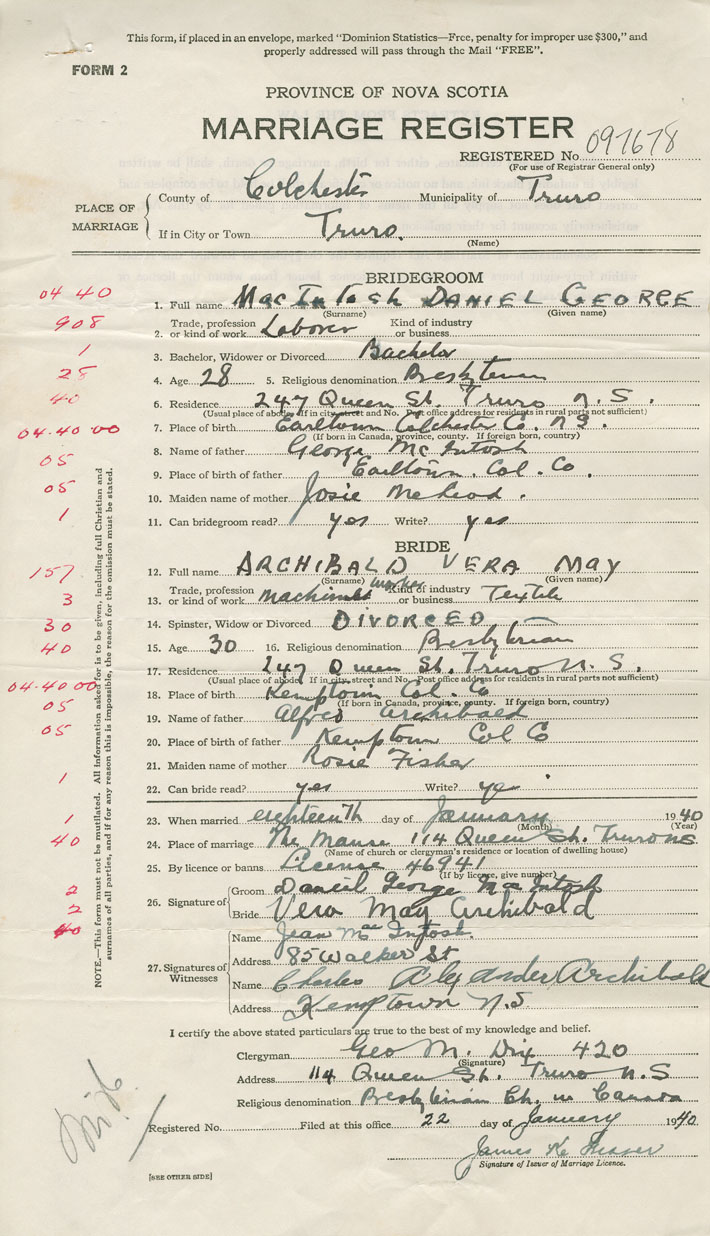 This form, if placed in an envelope, marked "Dominion Statistics—Free, penalty for improper use $300," and
properly addressed will pass through the Mail "FREE".
FORM 2
PROVINCE OF NOVA SCOTIA
MARRIAGE REGISTER
REGISTERED No. 097678
(For use of Registrar General only)
PLACE OF MARRIAGE
County of Colchester Municipality of Truro
If in City or Town Truro.
(Name)
BRIDEGROOM
04 40
1. Full name MacIntosh DANIEL GEORGE
(Surname) (Given name)
908
2. Trade, profession or kind of work Laborer Kind of industry or business
1
3. Bachelor, Widower or Divorced Bachelor
28
4. Age 28 5. Religious denomination Presbyterian
40
6. Residence 247 Queen St. Truro N.S.
(Usual place of abode. If in city, street and No. Post office address for residents in rural parts not sufficient)
04.40 00
7. Place of birth Earltown Colchester Co. N.S.
(If born in Canada, province, county. If foreign born, country)
05
8. Name of father George McIntosh
9. Place of birth of father Earltown. Col. Co.
05
10. Maiden name of mother Josie McLeod.
1
11. Can bridegroom read? yes Write? yes
BRIDE
157
12. Full name ARCHIBALD VERA MAY
(Surname) (Given name)
3
13. Trade, profession or kind of work Machinist worker Kind of industry or business Textile
30
14. Spinster, Widow or Divorced DIVORCED
40
15. Age 30 16. Religious denomination Presbyterian
17. Residence 247 Queen St. Truro N.S.
(Usual place of abode. If in city, street and No. Post office address for residents in rural parts not sufficient)
04.40 00
18. Place of birth Kemptown Col. Co
(If born in Canada, province, county. If foreign born, country)
05
19. Name of father Alfred Archibald
05
20. Place of birth of father Kemptown Col Co
21. Maiden name of mother Rosie Fisher
1
22. Can bride read? yes Write? ye
1
23. When married eighteenth day of January 1940
(Month) (Year)
40
24. Place of marriage The Manse 114 Queen St. Truro NS
(Name of church or clergyman's residence or location of dwelling house)
25. By licence or banns License 46941
(If by licence, give number)
2
2
40
26. Signature of
Groom Daniel George MacIntosh
Bride Vera May Archibald
27. Signatures of Witnesses
Name Jean MacIntosh.
Address 85 Walker St
Name Charles Alexander Archibald
Address Kemptown N.S
I certify the above stated particulars are true to the best of my knowledge and belief.
Clergyman Geo M. Dix 420
(Signature)
Address 114 Queen St. Truro N.S
Religious denomination Presbyterian Ch. in Canada
Registered No. Filed at this office 22 day of January 1940
James K. Fraser
Signature of Issuer of Marriage Licence.
[SEE OTHER SIDE]
NOTE.—This form must not be mutilated. All information asked for is to be given, including full Christian and
surnames of all parties, and if for any reason this is impossible, the reason for the omission must be stated.